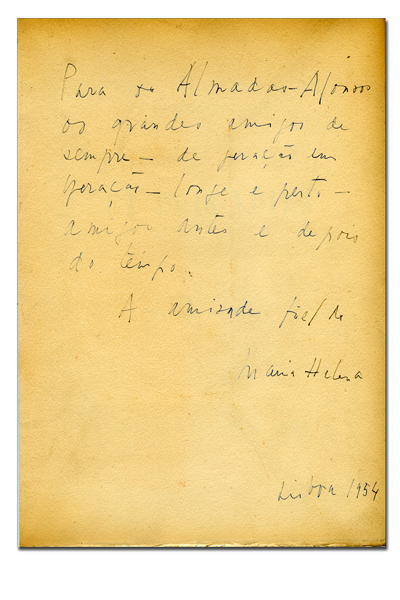 Para os Almadas-Afonsos
os grandes amigos de
sempre – de geração em
geração – longe e perto –
amigos antes e depois
do tempo.
A amizade fiel de
Maria Helena
Lisboa 1954